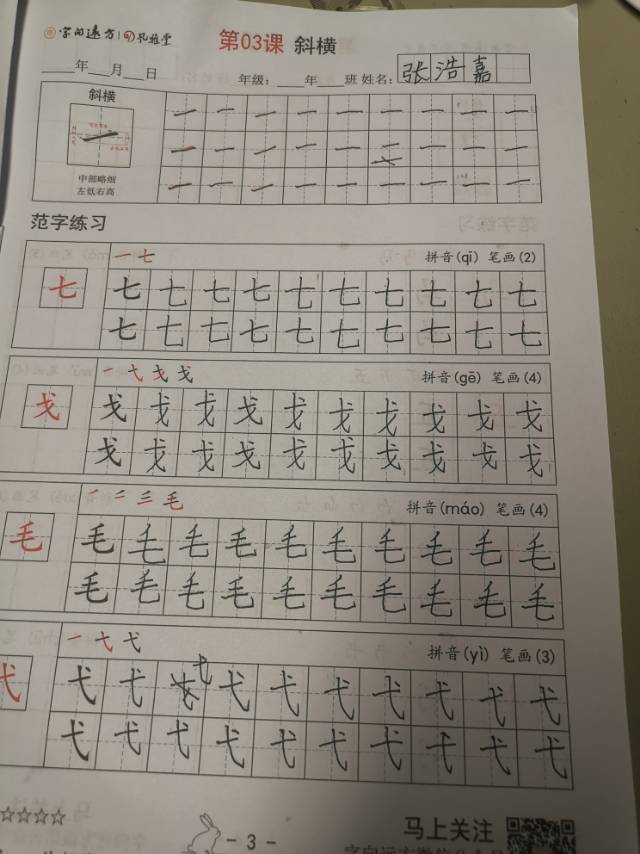 字向远方 礼雅堂 第03课 斜横
年 月 日 年级： 年 班 姓名： 张浩嘉
斜横
中部略细
左低右高
范字练习
一 七 拼音(qī) 笔画(2)
七 七 七 七 七 七 七 七 七 七 七
七 七 七 七 七 七 七 七 七 七
一 弋 戈 戈 拼音(gē) 笔画(4)
戈 戈 戈 戈 戈 戈 戈 戈 戈 戈 戈
戈 戈 戈 戈 戈 戈 戈 戈 戈 戈
一 二 三 毛 拼音(máo) 笔画(4)
毛 毛 毛 毛 毛 毛 毛 毛 毛 毛 毛
毛 毛 毛 毛 毛 毛 毛 毛 毛 毛
一 弋 弋 拼音(yì) 笔画(3)
弋 弋 弋 弋 弋 弋 弋 弋 弋 弋 弋
弋 弋 弋 弋 弋 弋 弋 弋 弋 弋
☆☆☆☆ - 3 - 马上关注